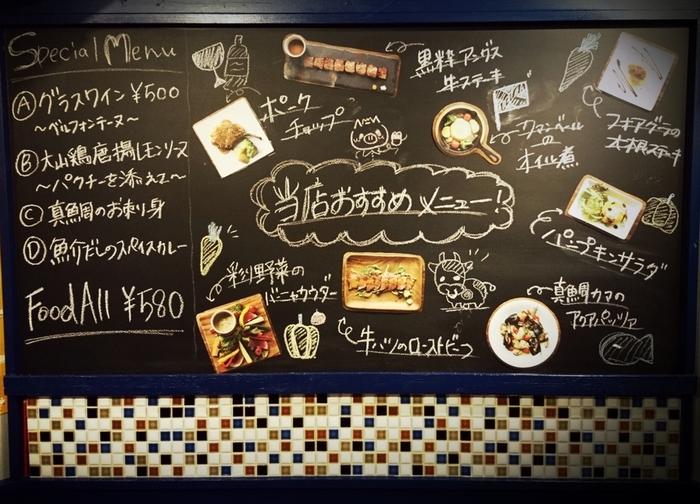 Special Menu
Ⓐグラスワイン ¥500
～ベルフォンテーヌ～
Ⓑ大山鶏唐揚げレモンソース
～パクチーを添えて～
Ⓒ真鯛のお刺り身
Ⓓ魚介だしのスパイスカレー
Food All ¥580
黒粋アンガス
牛ステーキ
ポーク
チョップ
カマンベールの
オイル煮
フォアグラの
大根ステーキ
当店おすすめメニュー!
パンプキンサラダ
彩り野菜の
バーニャカウダー
牛ハツのローストビーフ
真鯛カマの
アクアパッツァ